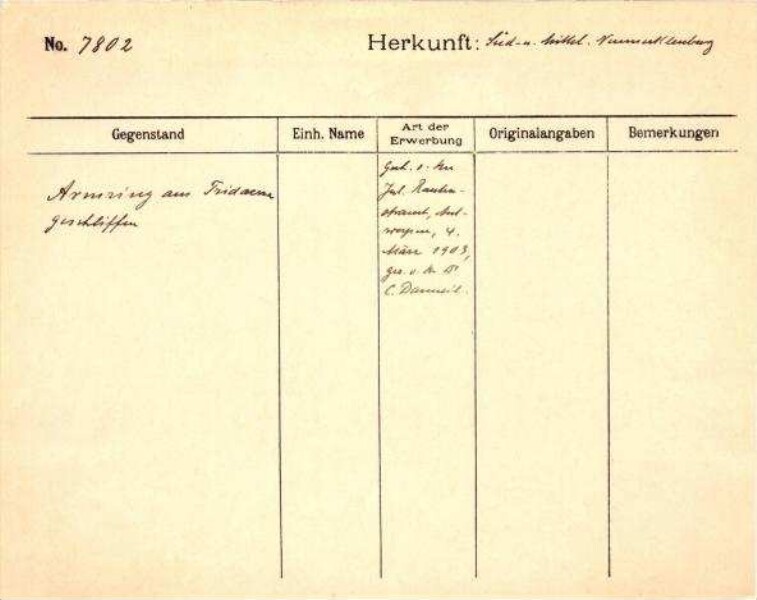 No. 7802
Herkunft: Süd- u. Mittel-Neumecklenburg
Gegenstand
Einh. Name
Art der
Erwerbung
Originalangaben
Bemerkungen
Armring aus Tridacna
geschliffen
Gesch. v. Hrn
Jul. Rauten-
strauch, Ant-
werpen, 4.
März 1903,
ges. v. Hr. Dr.
C. Danneil.